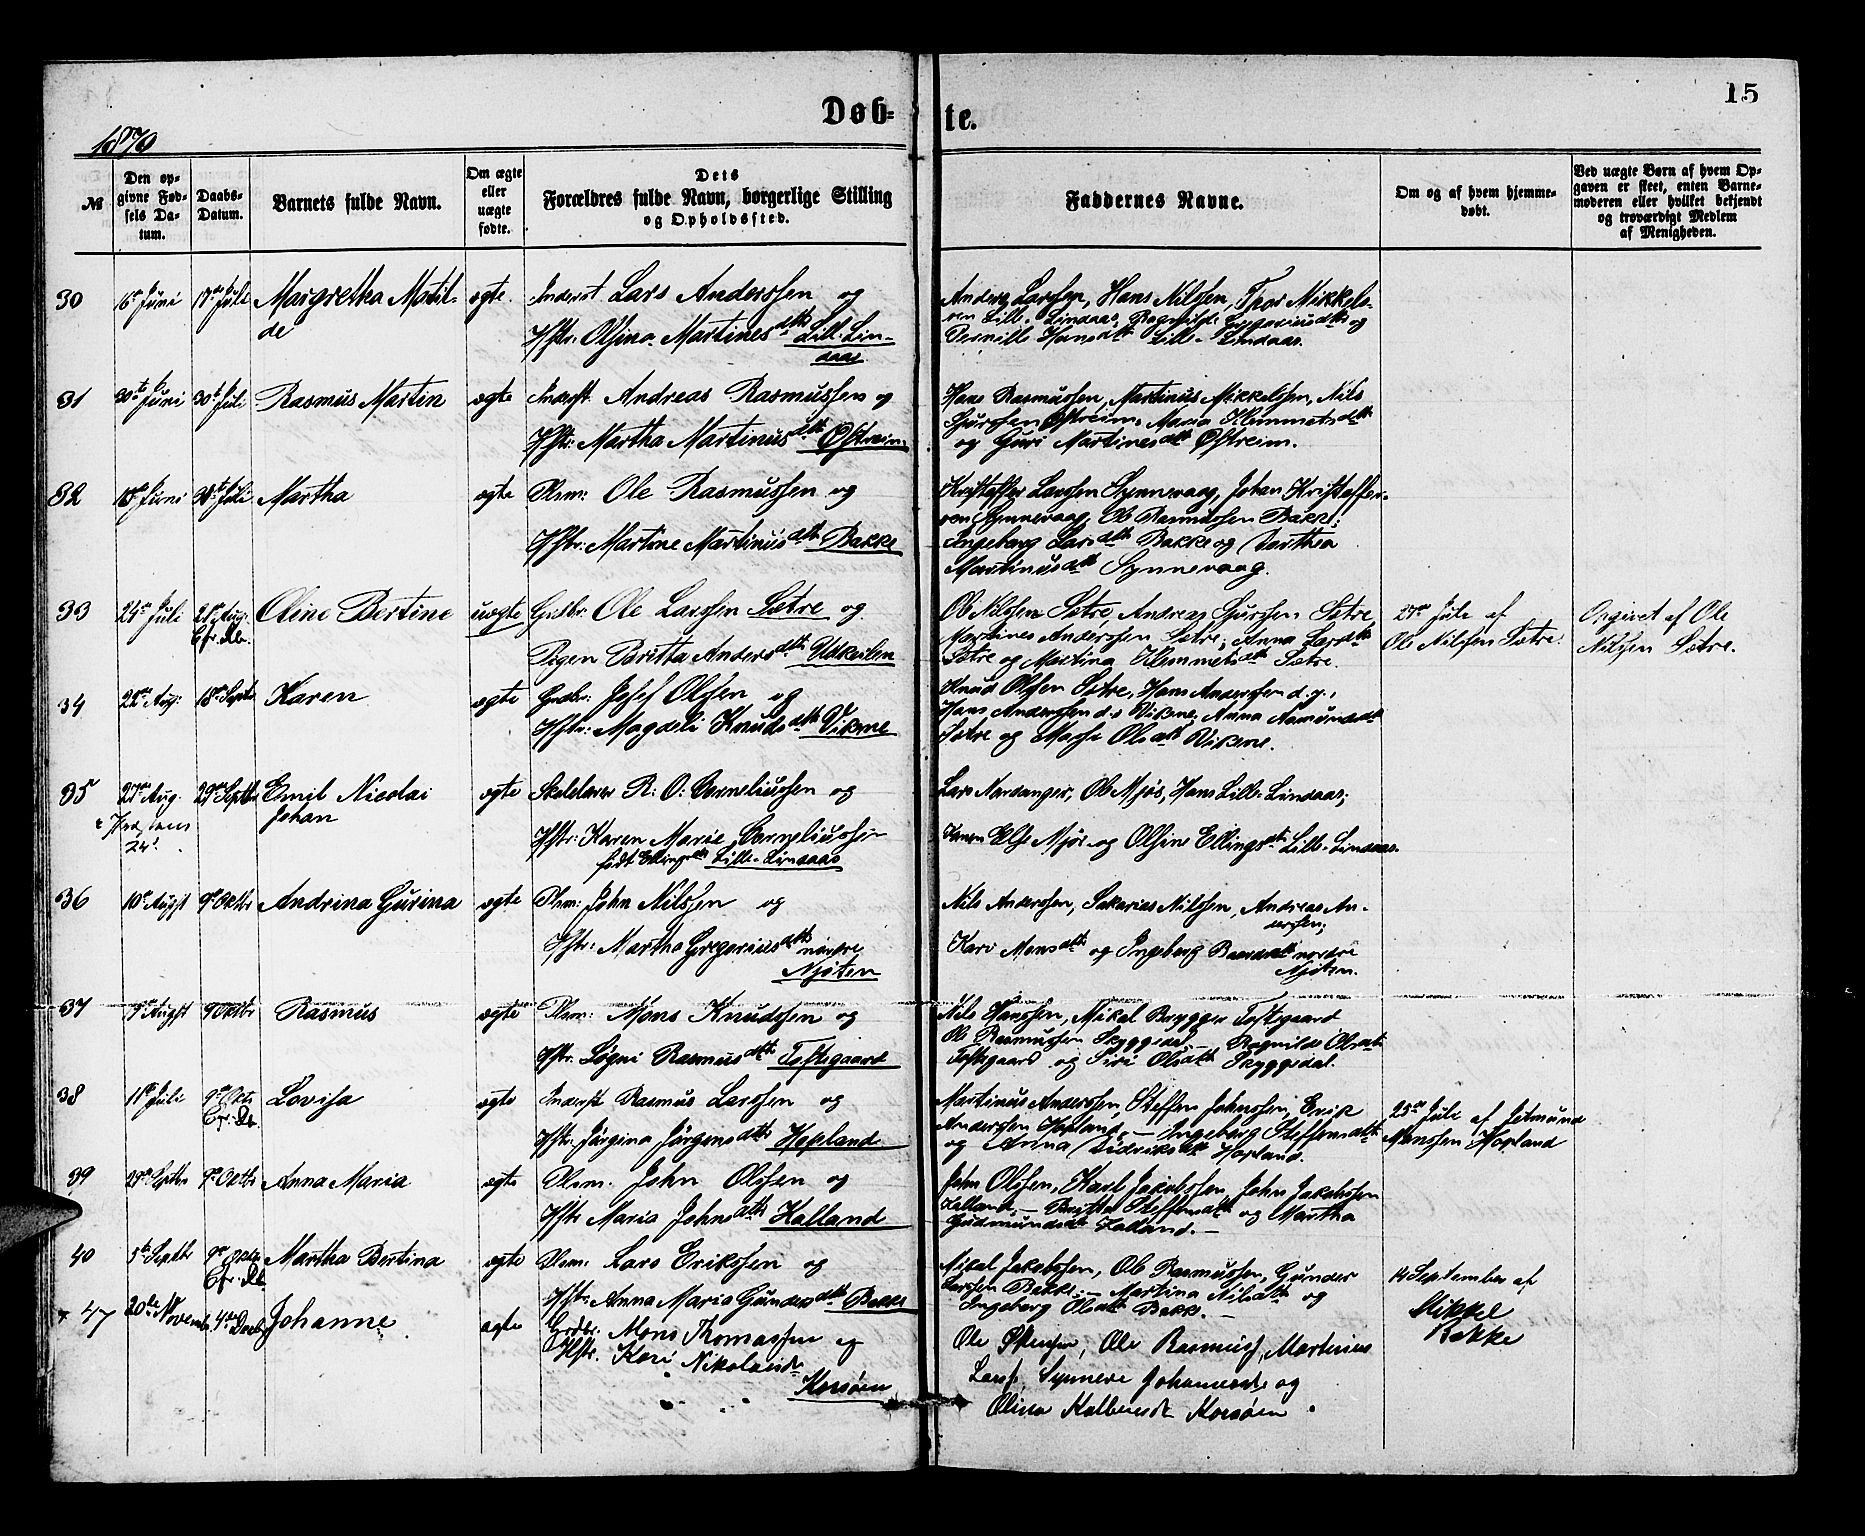 15
Døb-
te.
1870
№
Den op-
givne Fød-
sels Da-
tum.
Daabs-
Datum.
Barnets fulde Navn.
Om ægte
eller
uægte
fødte.
Dets
Forældres fulde Navn, borgerlige Stilling
og Opholdssted.
Faddernes Navne.
Om og af hvem hjemme-
døbt.
Ved uægte Børn af hvem Op-
gaven er skeet, enten Barne-
moderen eller hvilket bekjendt
og troværdigt Medlem
af Menigheden.
30 16de Juni 17de Juli Margretha Matil- ægte. Inderst Lars Anderssen og
de
Hstr: Oljina Martinesdtr Lill. Lin-
daas
Anders Larssen, Hans Nilssen, Thor Mikkels-
sen Lill. Lindaas, Ragnhild Gregoriusdtr og
Pernille Hansdtr Lille-Lindaas.
31 30te Juni 30te Juli Rasmus Martin ægte Inderst. Andreas Rasmussen og
Hstr: Martha Martinusdtr Østreim
Hans Rasmussen, Martinus Mikkelssen, Nils
Sjurssen Østreim, Maria Hemmetsdtr
og Guri Martinesdtr Østreim.
32 Juni Juli Martha ægte Plsm: Ole Rasmussen og
Hstr: Martine Martinusdtr Bakke
Kristoffer Larssen Synnevaag, Johan Kristoffer-
sen Synnevaag, Ole Rasmussen Bakke;
Ingeborg Larsdtr Bakke og Dorthea
Martinusdtr Synnevaag.
33 24de Juli 21de Aug. Oline Bertine uægte Gndbr. Ole Larssen Sætre og
Cfr. Rb.
Pigen Britta Andersdtr Udkvilen
Ole Nilssen Sætre, Andreas Sjurssen Sætre
Martines Anderssen Sætre; Anna Larsdtr
Sætre og Martina Hemmetsdtr Sætre.
27de Juli af
Ole Nilssen Sætre.
Opgivet af Ole
Nilssen Sætre.
34 22de Aug: 18de Septbr Karen ægte Gndbr: Josef Olssen og
Hstr: Magdeli Knudsdtr Vikene
Knud Olssen Sætre, Hans Anderssen d.g.,
Hans Anderssen d.y. Vikene; Anna Aamundsdtr
Sætre og Marthe Olsdtr Vikene.
35 27de Aug. 29de Septbr Emil Nicolai ægte Skolelærer R. O. Corneliussen og
Johan
24'.
Hstr: Karen Marie Corneliussen
født Ellingsdtr Lille-Lindaas
Lars Nordanger, Ole Mjøs, Hans Lille-Lindaas;
Karen Else Mjøs og Olsine Ellingsdtr Lille-Lindaas.
36 10de Augst 9de Oktbr Andrina Gurina ægte Plsm: John Nilssen og
Hstr: Martha Gregoriusdtr nordre
Njøten
Nils Anderssen, Sakarias Nilssen, Andreas An-
derssen;
Kari Monsdtr og Ingeborg dtr nordre
Njøten.
37 9de Augst 9 Oktbr Rasmus ægte Plsm: Mons Knudssen og
Hstr. Søgni Rasmusdtr Toftegaard
Nils Hanssen, Mikal Brygger Toftegaard
Ole Rasmussen Skyggedal, — Ragnilde Olsdtr
Toftegaard og Siri Olsdtr Skyggedal.
38 11te Juli 9de Oktbr Lovisa ægte Inderst Rasmus Larssen og
Cfr. Rb.
Hstr. Jørgina Jørgensdtr Hopland
Martinus Anderssen, Steffen Johnssen, Erik
Anderssen Hopland, — Ingeborg Steffensdtr
og Anna Didriksdtr Hopland.
25de Juli af Jetmund
Monssen Hopland
39 29de Septbr 9de Octbr Anna Maria ægte Plsm. John Olssen og
Hstr Maria Johnsdtr Kalland
John Olssen, Karl Jakobssen, John Jakobssen
Kalland, — Britta Steffensdtr og Martha
Gudmundsdtr Kalland. —
40 5te Septbr 9de Oktbr Martha Bertina ægte Plsm: Lars Erikssen og
Cfr. Rb.
Hstr: Anna Maria Gundersdtr Bakke
Mikal Jakobssen, Ole Rasmussen, Gunder
Larssen Bakke. — Martina Nilsdtr og
Ingeborg Olsdtr Bakke. —
14 September af
Mikkel
Bakke
47 20de Novemb 4de Decbr Johanne ægte Grdbr. Mons Thomassen og
Hstr. Kari Nikolaisdtr
Korsøen
Ole , Ole Rasmuss, Martinus
Larss, Synneve Johannesdtr og
Olina Korsøen